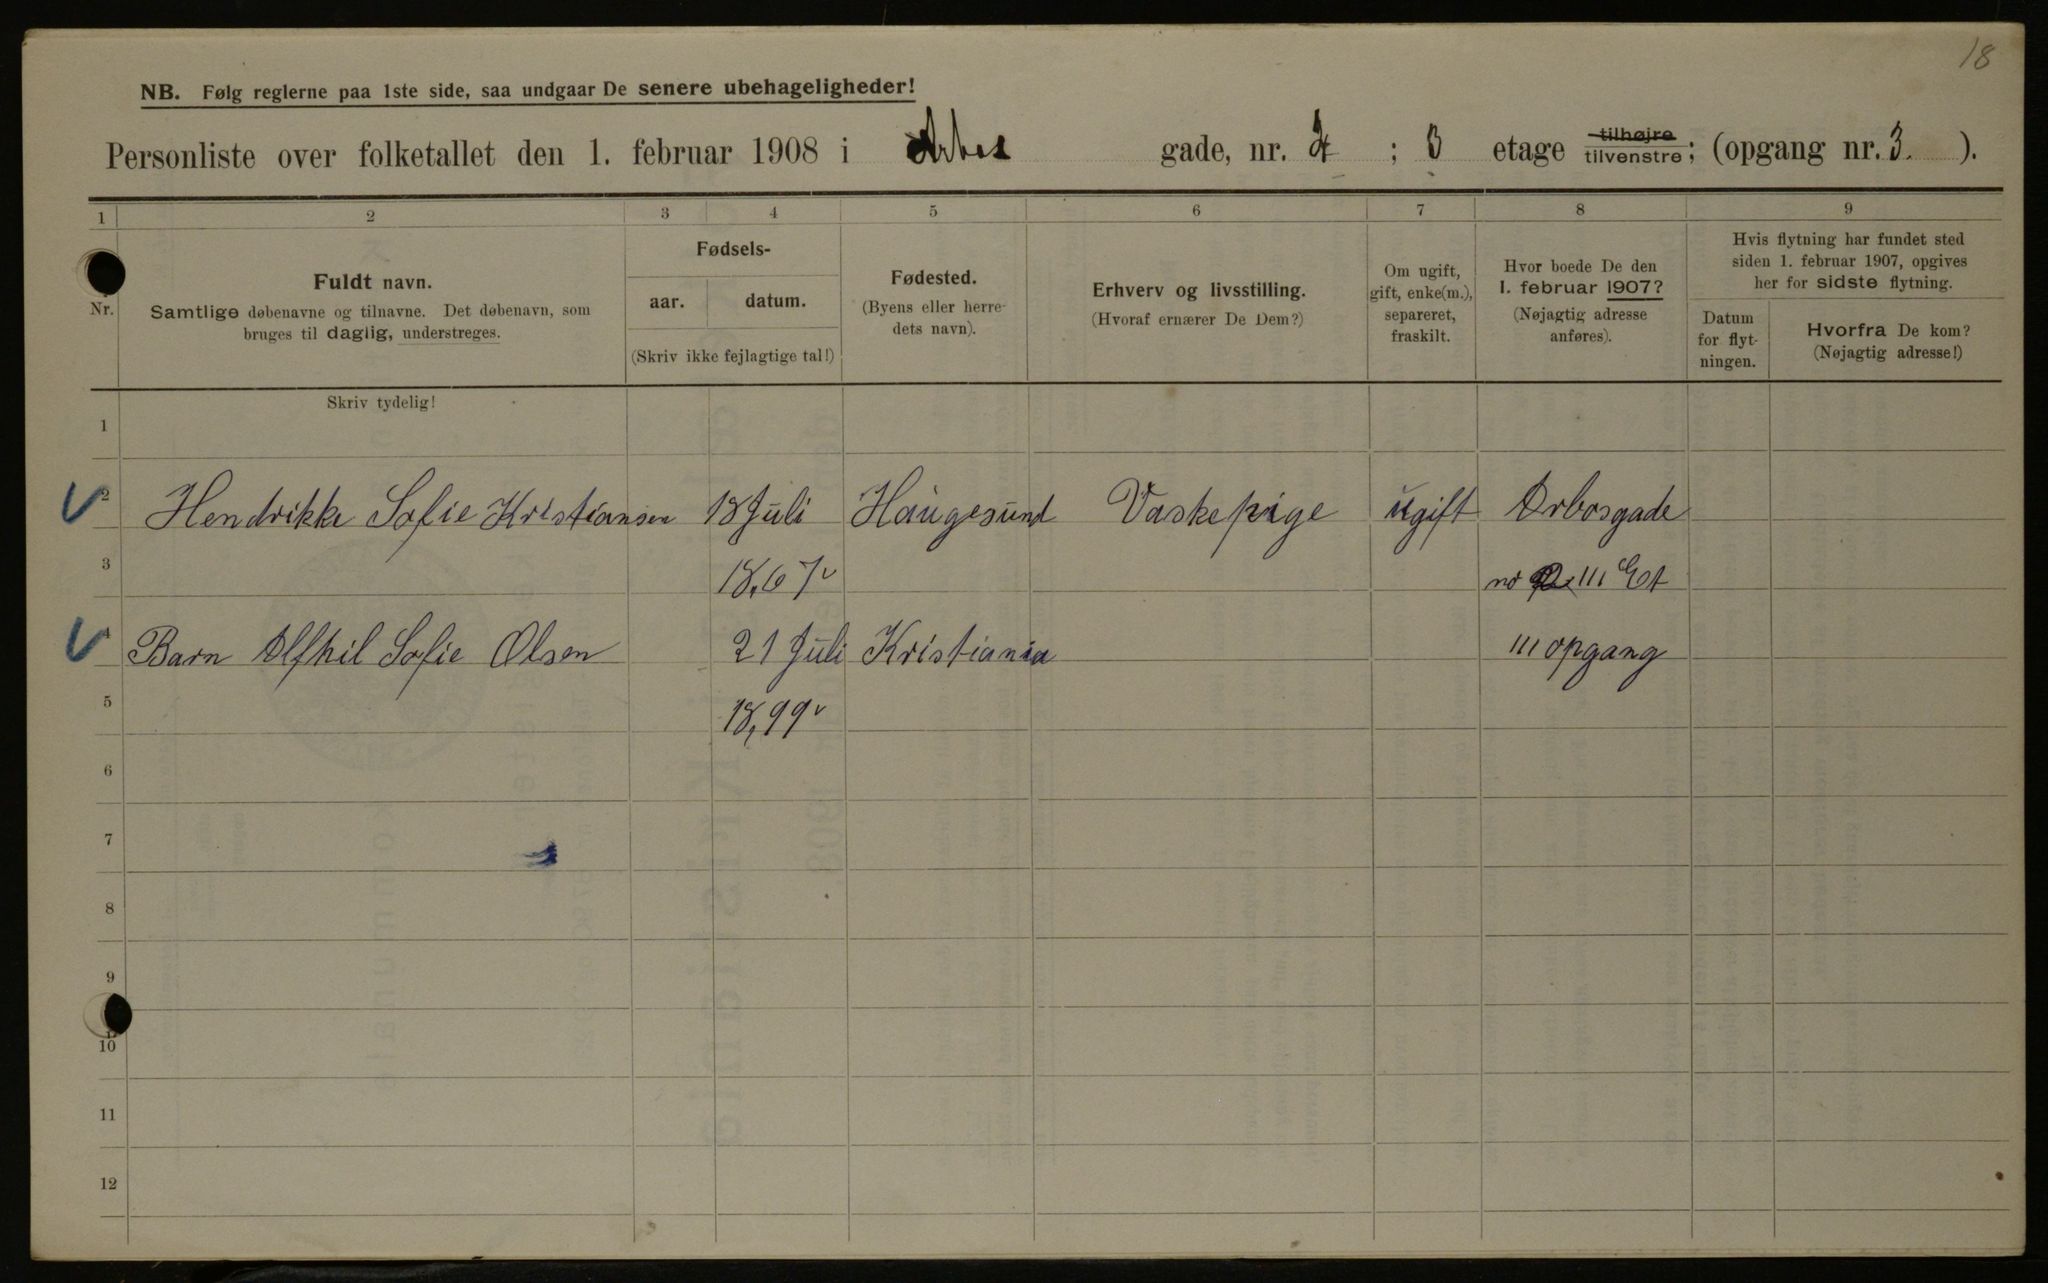 18
NB. Følg reglerne paa 1ste side, saa undgaar De senere ubehageligheder!
Personliste over folketallet den 1. februar 1908 i Arbos gade, nr. ; 3 etage tilhøjre tilvenstre; (opgang nr. 3. ).
1 2 3 4 5 6 7 8 9
Nr.
Fuldt navn.
Samtlige døbenavne og tilnavne. Det døbenavn, som
bruges til daglig, understreges.
Fødsels-
aar. datum.
(Skriv ikke fejlagtige tal!)
Fødested.
(Byens eller herre-
dets navn).
Erhverv og livsstilling.
(Hvoraf ernærer De Dem?)
Om ugift,
gift, enke(m.),
separeret,
fraskilt.
Hvor boede De den
1. februar 1907?
(Nøjagtig adresse
anføres).
Hvis flytning har fundet sted
siden 1. februar 1907, opgives
her for sidste flytning.
Datum
for flyt-
ningen.
Hvorfra De kom?
(Nøjagtig adresse!)
Skriv tydelig!
1
2 Hendrikke Sofie Kristiansen 18 Juli Haugesund Vaskepige ugift Arbosgade
3 18,67 no III Et
4 Barn Alfhil Sofie Olsen 21 Juli Kristiania III opgang
5 18,99
6
7
8
9
10
11
12